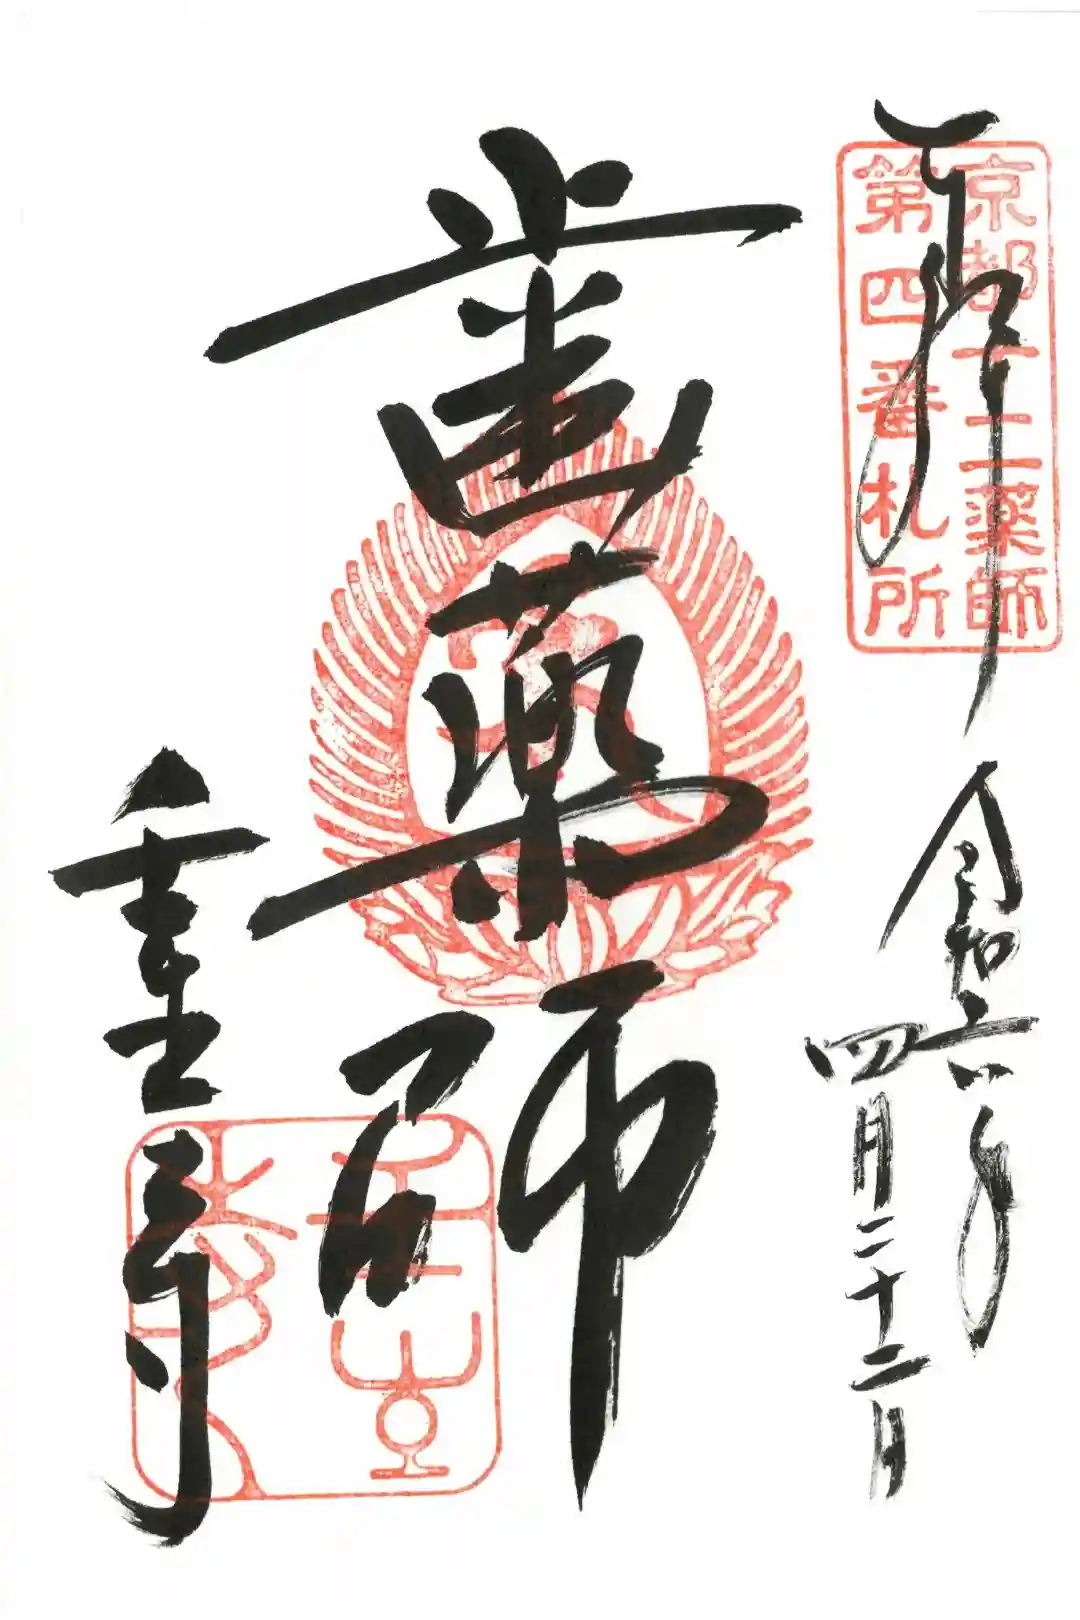 奉拝
京都十二薬師
第四番札所
令和六年
四月二十二日
歯薬師
壬生寺